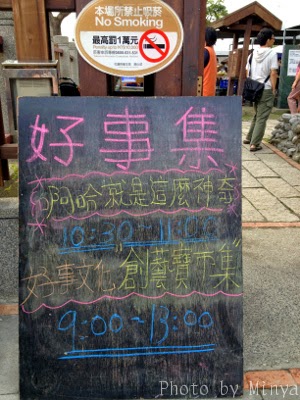 本場所禁止吸菸
No Smoking
最高罰1萬元
好事集
阿哈就是這麼神奇
10:30 11:00
好事文化"創藝寶市集"
9:00-13:00
Photo by Minya